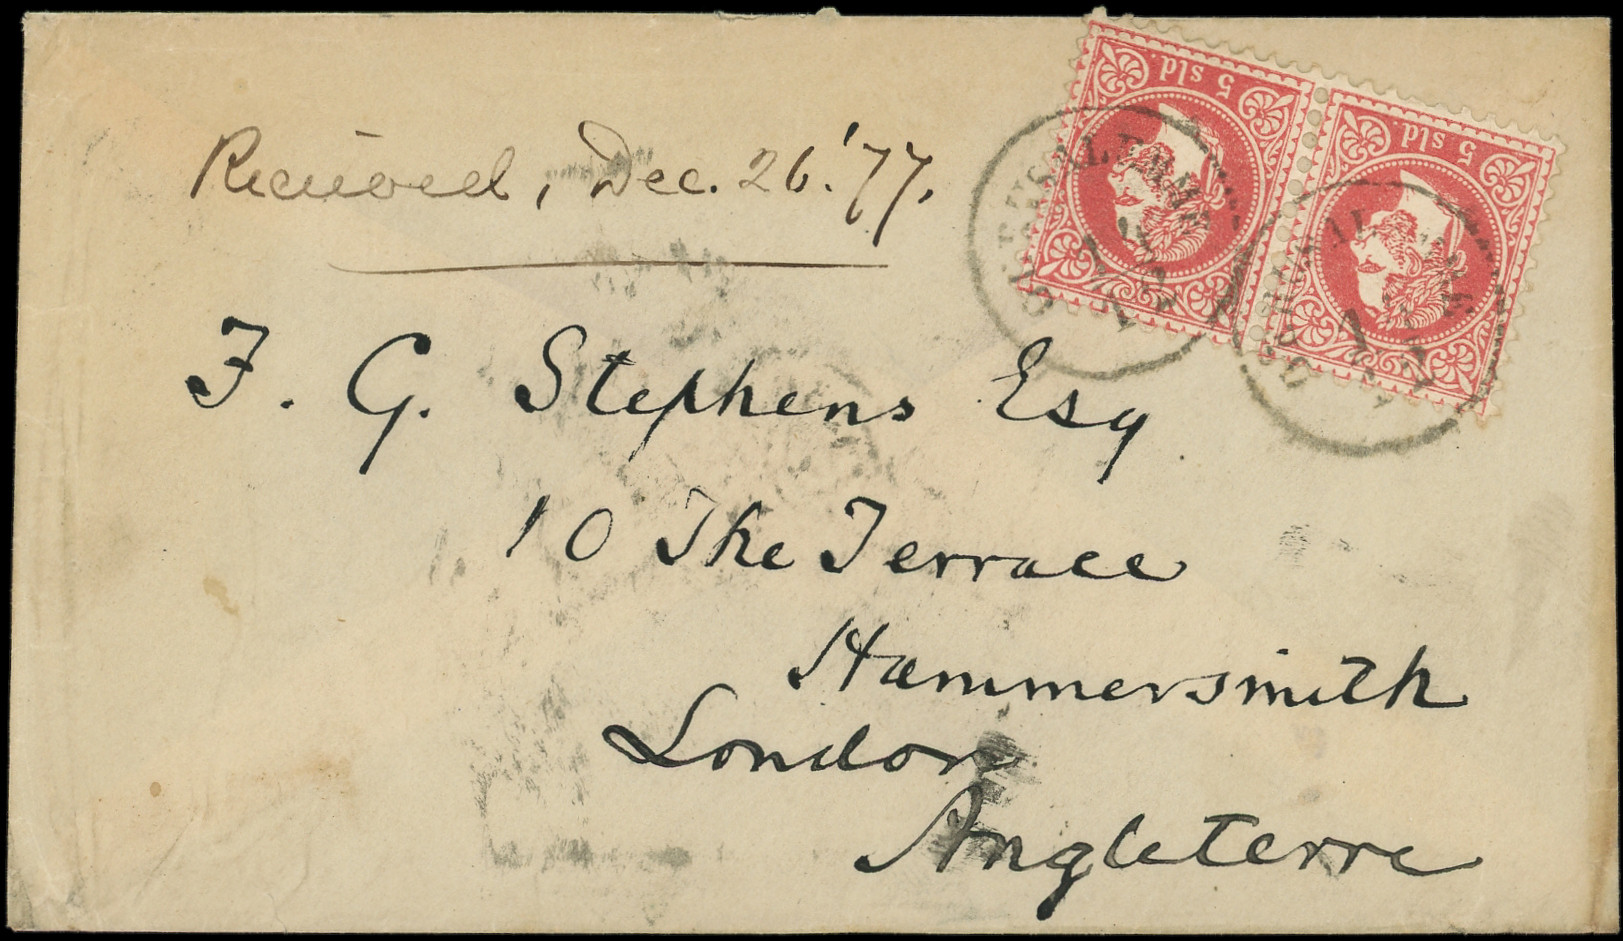 Received, Dec. 26. '77.
F. G. Stephens Esq
10 The Terrace
Hammersmith
London
Angleterre
5 sld.
5 sld.
GERUSALEMME
GERUSALEMME